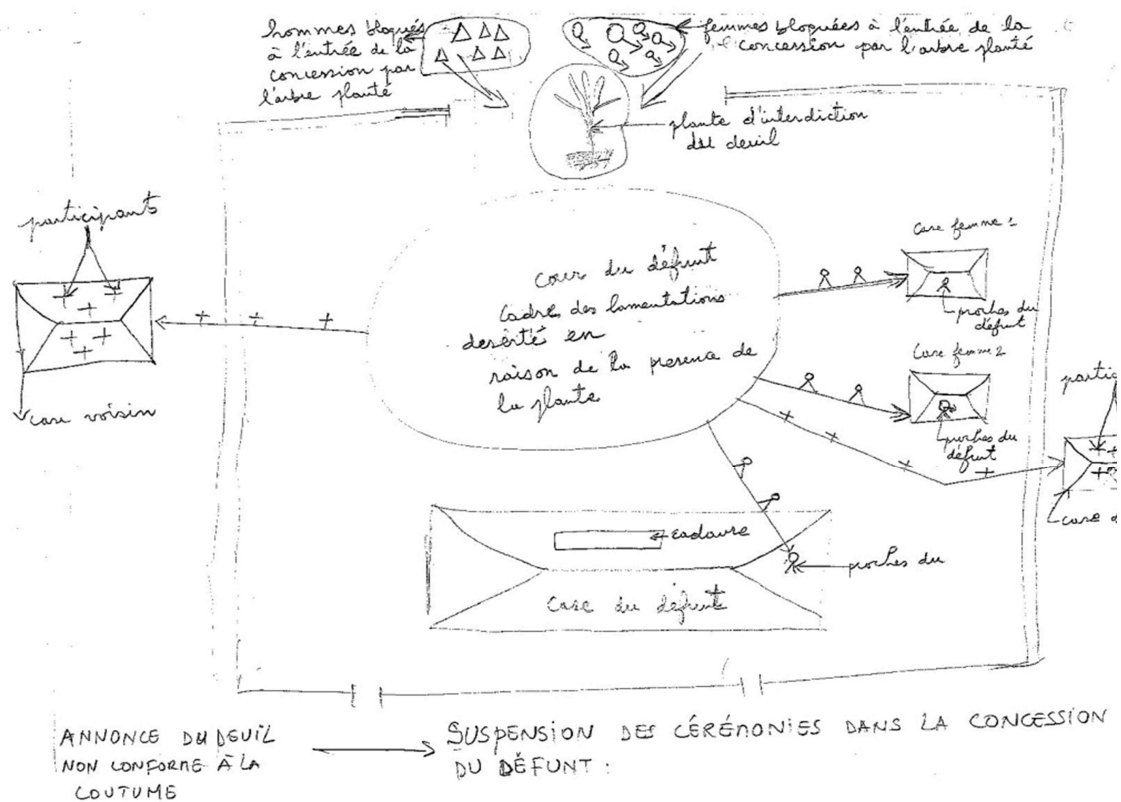 hommes bloqués
à l'entrée de la
concession par
l'arbre planté
femmes bloquées à l'entrée de la
concession par l'arbre planté
plante d'interdiction
du deuil
participants
case voisin
cour du défunt
cadre des lamentations
deserté en
raison de la presence de
la plante
Case femme 1
proches du
défunt
Case femme 2
proches du
défunt
partic
case d
cadavre
proches du
Case du défunt
ANNONCE DU DEUIL
NON CONFORME À LA
COUTUME
SUSPENSION DES CÉRÉMONIES DANS LA CONCESSION
DU DÉFUNT :